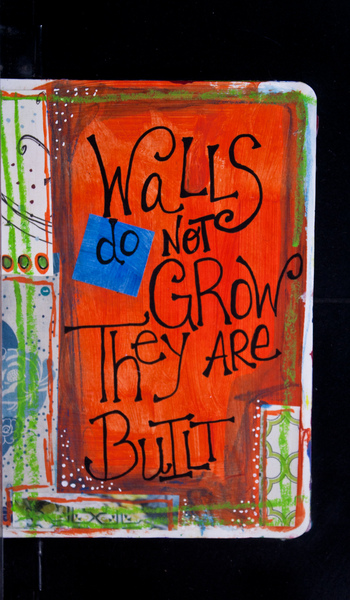 WaLLS
do NOT
GRoW
They ARE
BUILT